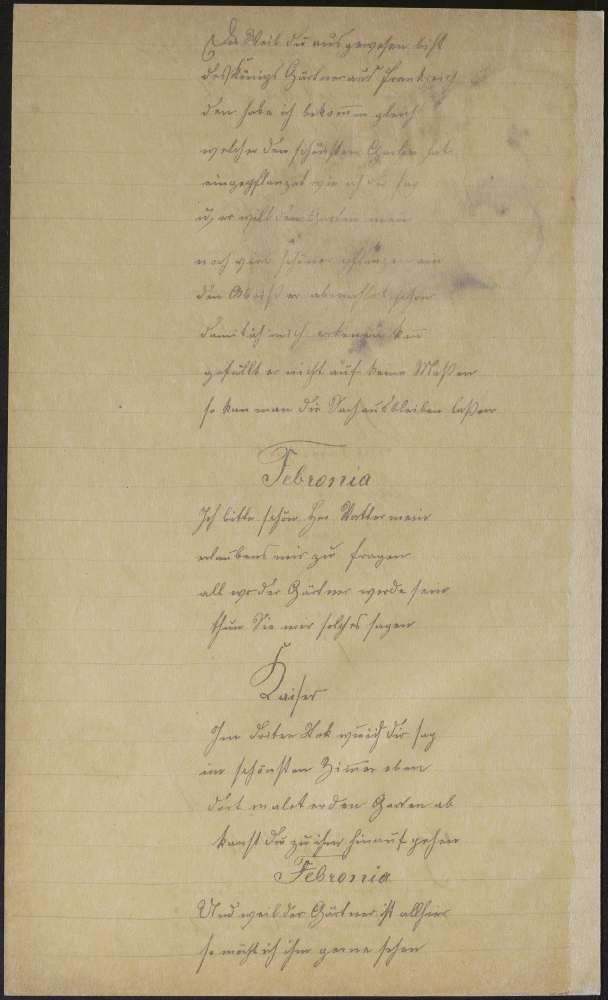 Du Weil du ausgewesen bist
des Königs Gärtner aus Frankreich
den habe ich bekom̅en gleich
welcher den schönsten Garten hat
eingepflanzet wie ich dir sag
u, er will den Garten mein
noch viel schöner pflanzen ein
den Abriß er abmahlet schon
damit ich mich erkenen kan
gefällt er nicht auf keine Maßen
so kan man die Sach ausbleiben laßen
Febronia
Ich bitte schön Her Vatter mein
erlaubens mir zu fragen
all wo der Gärtner werde sein
thun Sie mir solches sagen
Kaiser
Im dritten Stok wie ich dir sag
im schönsten Zim̅er eben
dort malet er den Garten ab
kanst du zu ihm hinauf gehen
Febronia
Und weil der Gärtner ist allhier
so möcht ich ihm gerne sehen